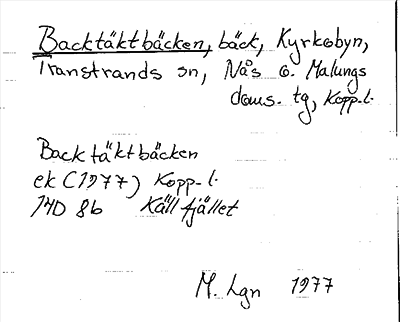 Backtäktbäcken, bäck, Kyrkobyn,
Transtrands sn, Nås o. Malungs
doms. tg, Kopp. l.
Backtäktbäcken
ek (1977) Kopp. l.
14D 8b Källfjället
M. Lgn 1977